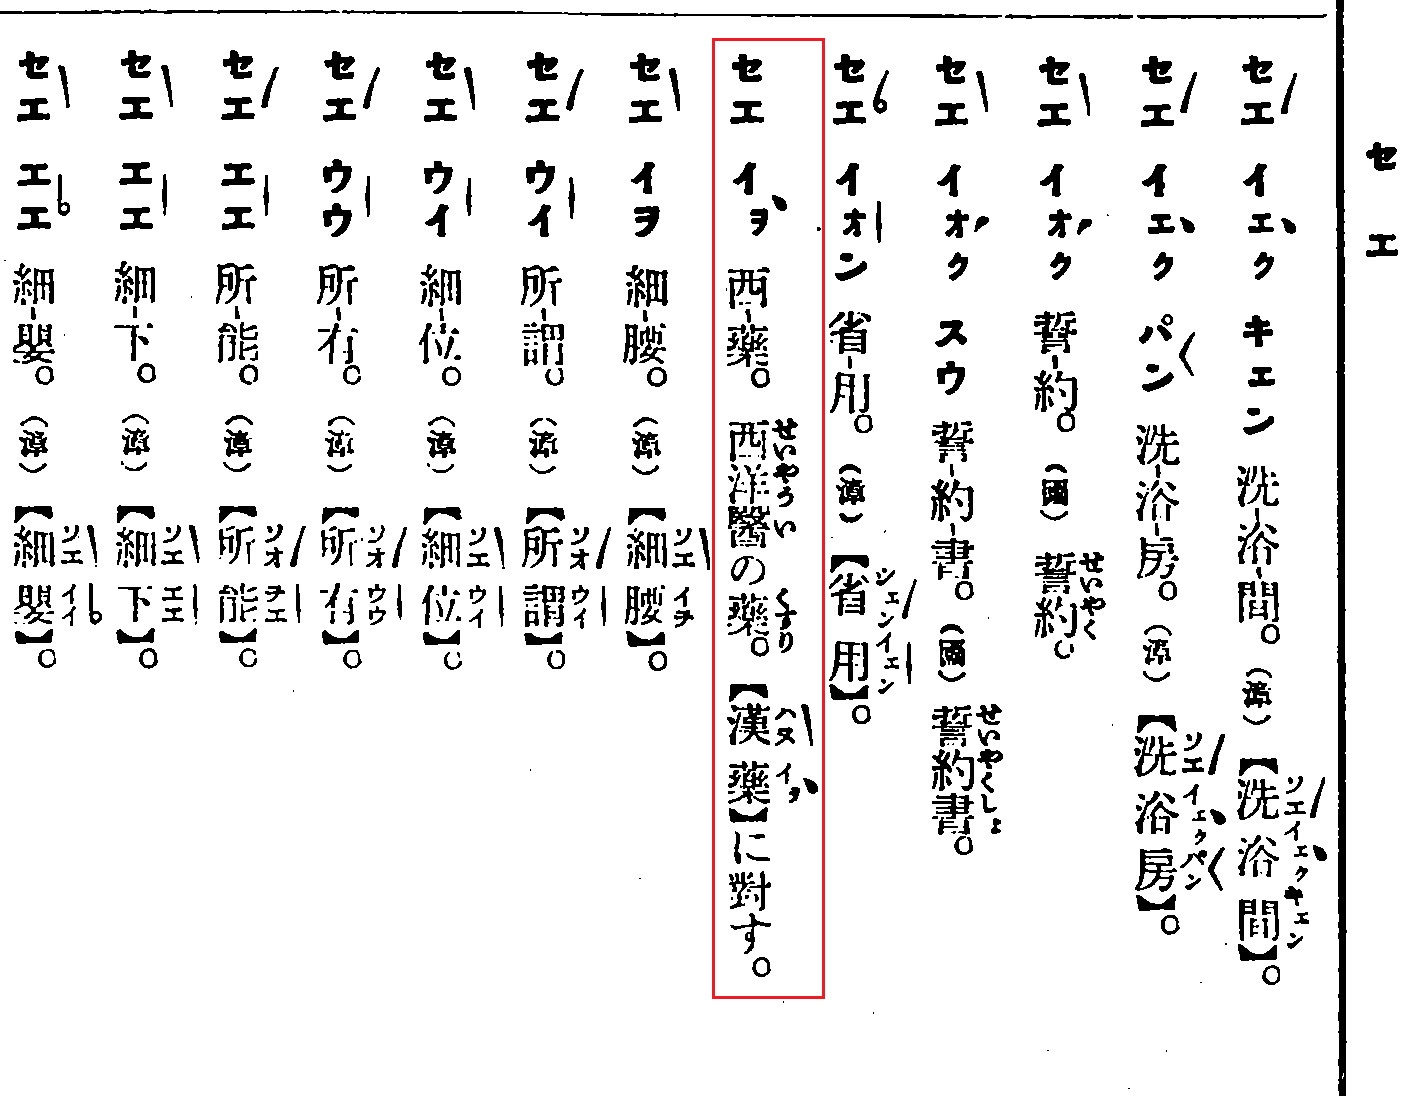 セエ
セエ イエク キエン 洗-浴-間。(漳)【洗浴間】。
セエ イエク パン 洗-浴-房。(漳)【洗浴房】。
セエ イオク 誓-約。(國)誓約。
セエ イオク スウ 誓-約-書。(國)誓約書。
セエ イオン 省-用。(漳)【省用】。
セエ イヲ 西-藥。西洋醫の藥。【漢藥】に對す。
セエ イヲ 細-腰。(漳)【細腰】。
セエ ウイ 所-謂。(漳)【所謂】。
セエ ウイ 細-位。(漳)【細位】。
セエ ウウ 所-有。(漳)【所有】。
セエ エエ 所-能。(漳)【所能】。
セエ エエ 細-下。(漳)【細下】。
セエ エエ 細-嬰。(漳)【細嬰】。